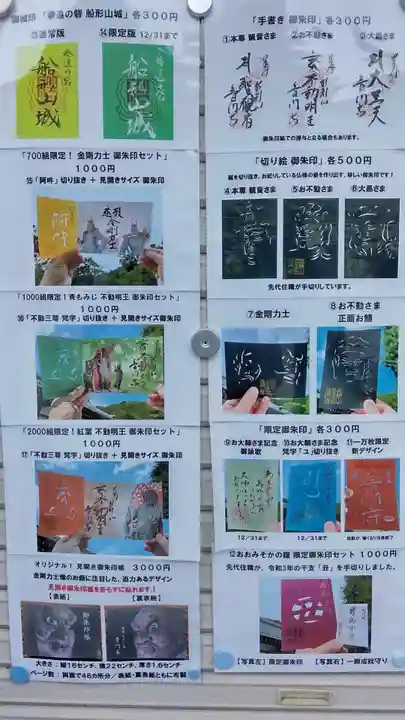 御城印 「夢違の砦 船形山城」 各300円
⑬通常版
⑭限定版 12/31まで
船形山城
船形山城
「700組限定！金剛力士 御朱印セット」
1000円
⑮「阿吽」切り抜き ＋ 見開きサイズ 御朱印
阿吽
「1000組限定！青もみじ 不動明王 御朱印セット」
1000円
⑯「不動三尊 梵字」切り抜き ＋ 見開きサイズ御朱印
「2000組限定！紅葉 不動明王 御朱印セット」
1000円
⑰「不動三尊 梵字」切り抜き ＋ 見開きサイズ 御朱印
オリジナル！見開き御朱印帳 3000円
金剛力士像のお顔に注目した、迫力あるデザイン
見開き御朱印紙を折らずに貼れます！
【表紙】
【裏表紙】
御朱印帳
大きさ：縦16センチ、横22センチ、厚さ1.6センチ
ページ数：両面で46カ所分／表紙・裏表紙ともに布製
「手書き 御朱印」各300円
①本尊 観音さま
②お不動さま
③大黒さま
御朱印紙での授与となる場合もあります。
「切り絵 御朱印」各500円
紙を切り抜き、お祀りしている仏様の姿を作り出す、珍しい御朱印です！
④本尊 観音さま
⑤お不動さま
⑥大黒さま
先代住職が手切りしています。
⑦金剛力士
⑧お不動さま
正面お顔
「限定御朱印」各300円
⑨お大師さま記念
御詠歌
⑩お大師さま記念
梵字「ユ」切り抜き
⑪一万枚限定
新デザイン
12/31まで
12/31まで
⑫おおみそかの鐘 限定御朱印セット 1000円
先代住職が、令和3年の干支「丑」を手切りしました。
丑
【写真左】限定御朱印
【写真右】一願成就守り